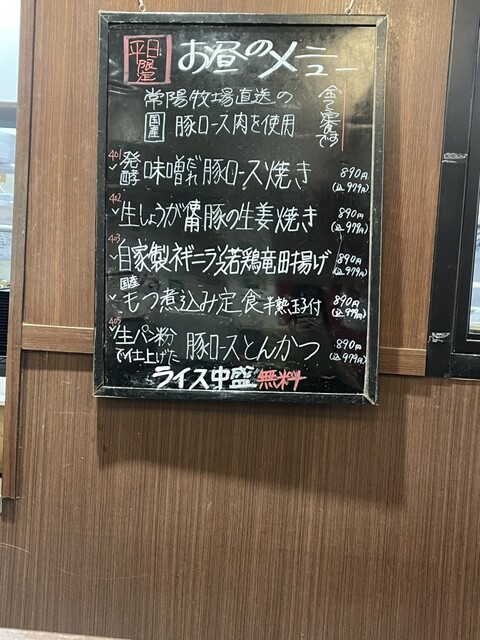 平日限定 お昼のメニュー
常陽牧場直送の
国産 豚ロース肉を使用
全て定食です
401 発酵味噌だれ豚ロース焼き 890円
(込979円)
402 生しょうが使用豚の生姜焼き 890円
(込979円)
403 自家製ネギニラソース若鶏竜田揚げ 890円
(込979円)
国産もつ煮込み定食 半熟玉子付 890円
(込979円)
405 生パン粉で仕上げた 豚ロースとんかつ 890円
(込979円)
ライス中盛無料